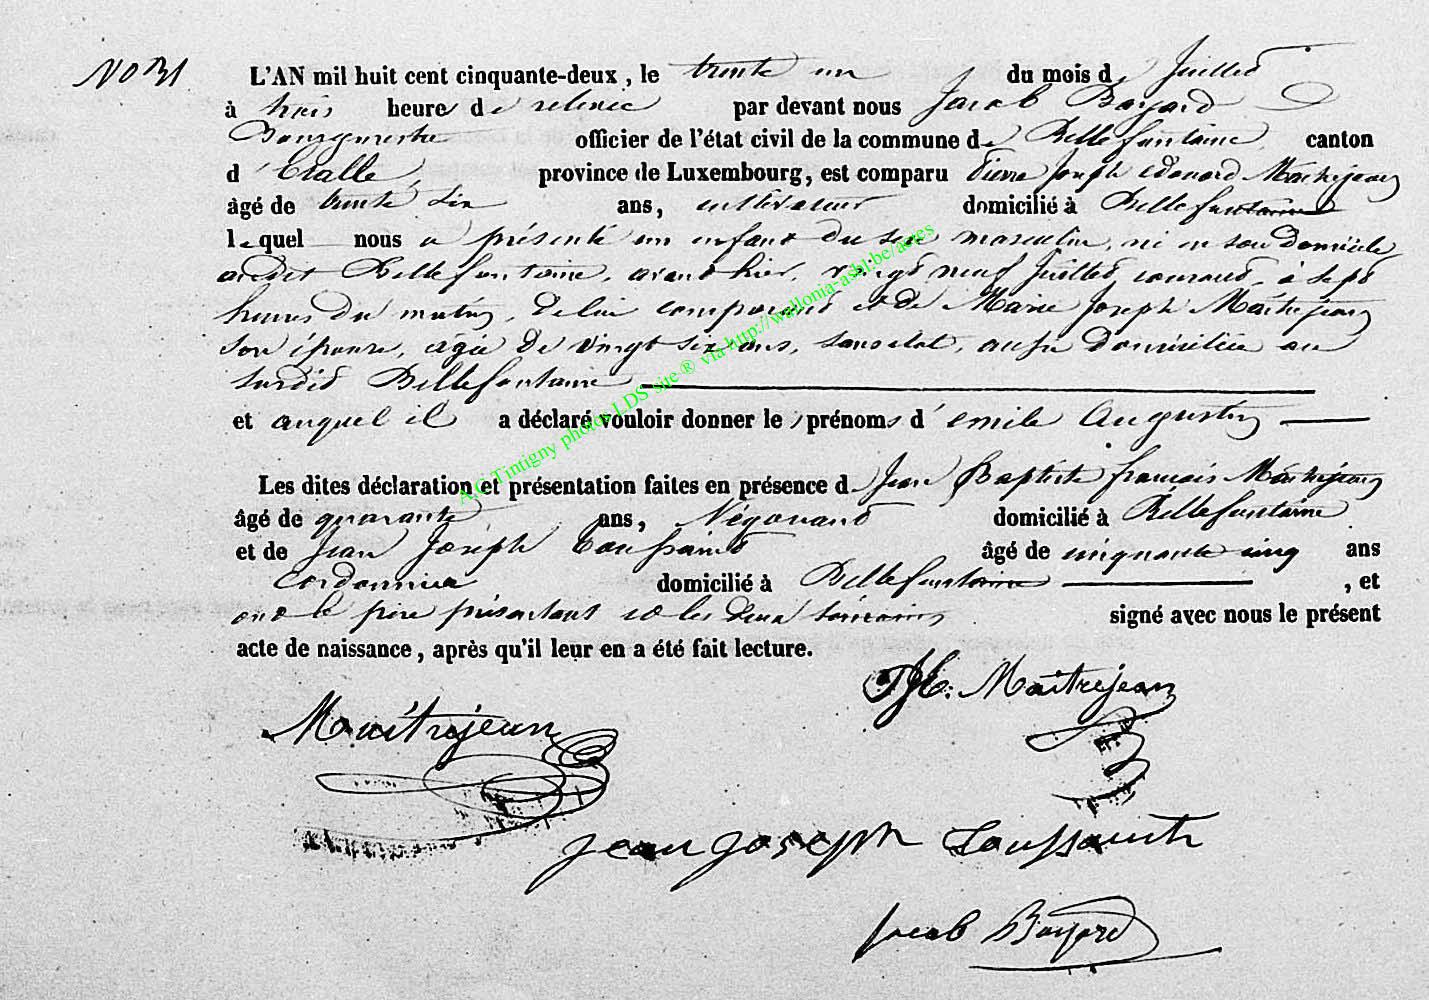 No 31
L'AN mil huit cent cinquante-deux, le trente un du mois de Juillet
à trois heures de relevée par devant nous Jacob Bayard
Bourgmestre officier de l'état civil de la commune de Bellefontaine canton
d'Etalle, province de Luxembourg, est comparu Pierre Joseph Edouard Maitrejean
âgé de trente six ans, cultivateur domicilié à Bellefontaine
lequel nous a présenté un enfant du sexe masculin, né en son domicile
audit Bellefontaine, avant hier, vingt neuf Juillet courant, à sept
heures du matin, de lui comparant et de Marie Joseph Maitrejean
son épouse, agée de vingt six ans, sans etat, aussi domiciliée au
susdit Bellefontaine
et auquel il a déclaré vouloir donner les prénoms d'emile Augustin
Les dites déclaration et présentation faites en présence de Jean Baptiste françois Maitrejean
âgé de quarante ans, Négociant domicilié à Bellefontaine
et de Jean Joseph Toussaint âgé de cinquante cinq ans
cordonnier domicilié à Bellefontaine , et
ont le père présentant et les deux témoins signé avec nous le présent
acte de naissance, après qu'il leur en a été fait lecture.
Maitrejean
Maitrejean
jean joseph Toussainte
Jacob Bayard
A.C Tintigny photos LDS site ® via http://wallonia-asbl.be/actes